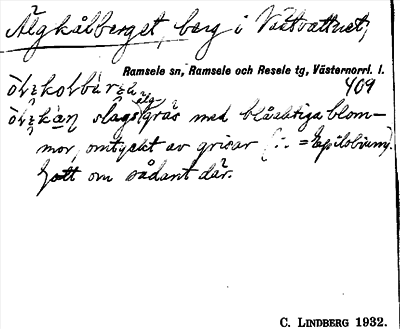 Älgkålberget, berg i Västvattnet,
Ramsele sn, Ramsele och Resele tg, Västernorrl. l.
409
slags gräs med blåaktiga blom-
mor, omtyckt av grisar (:. = Epilobium).
Gott om sådant där.
C. LINDBERG 1932.